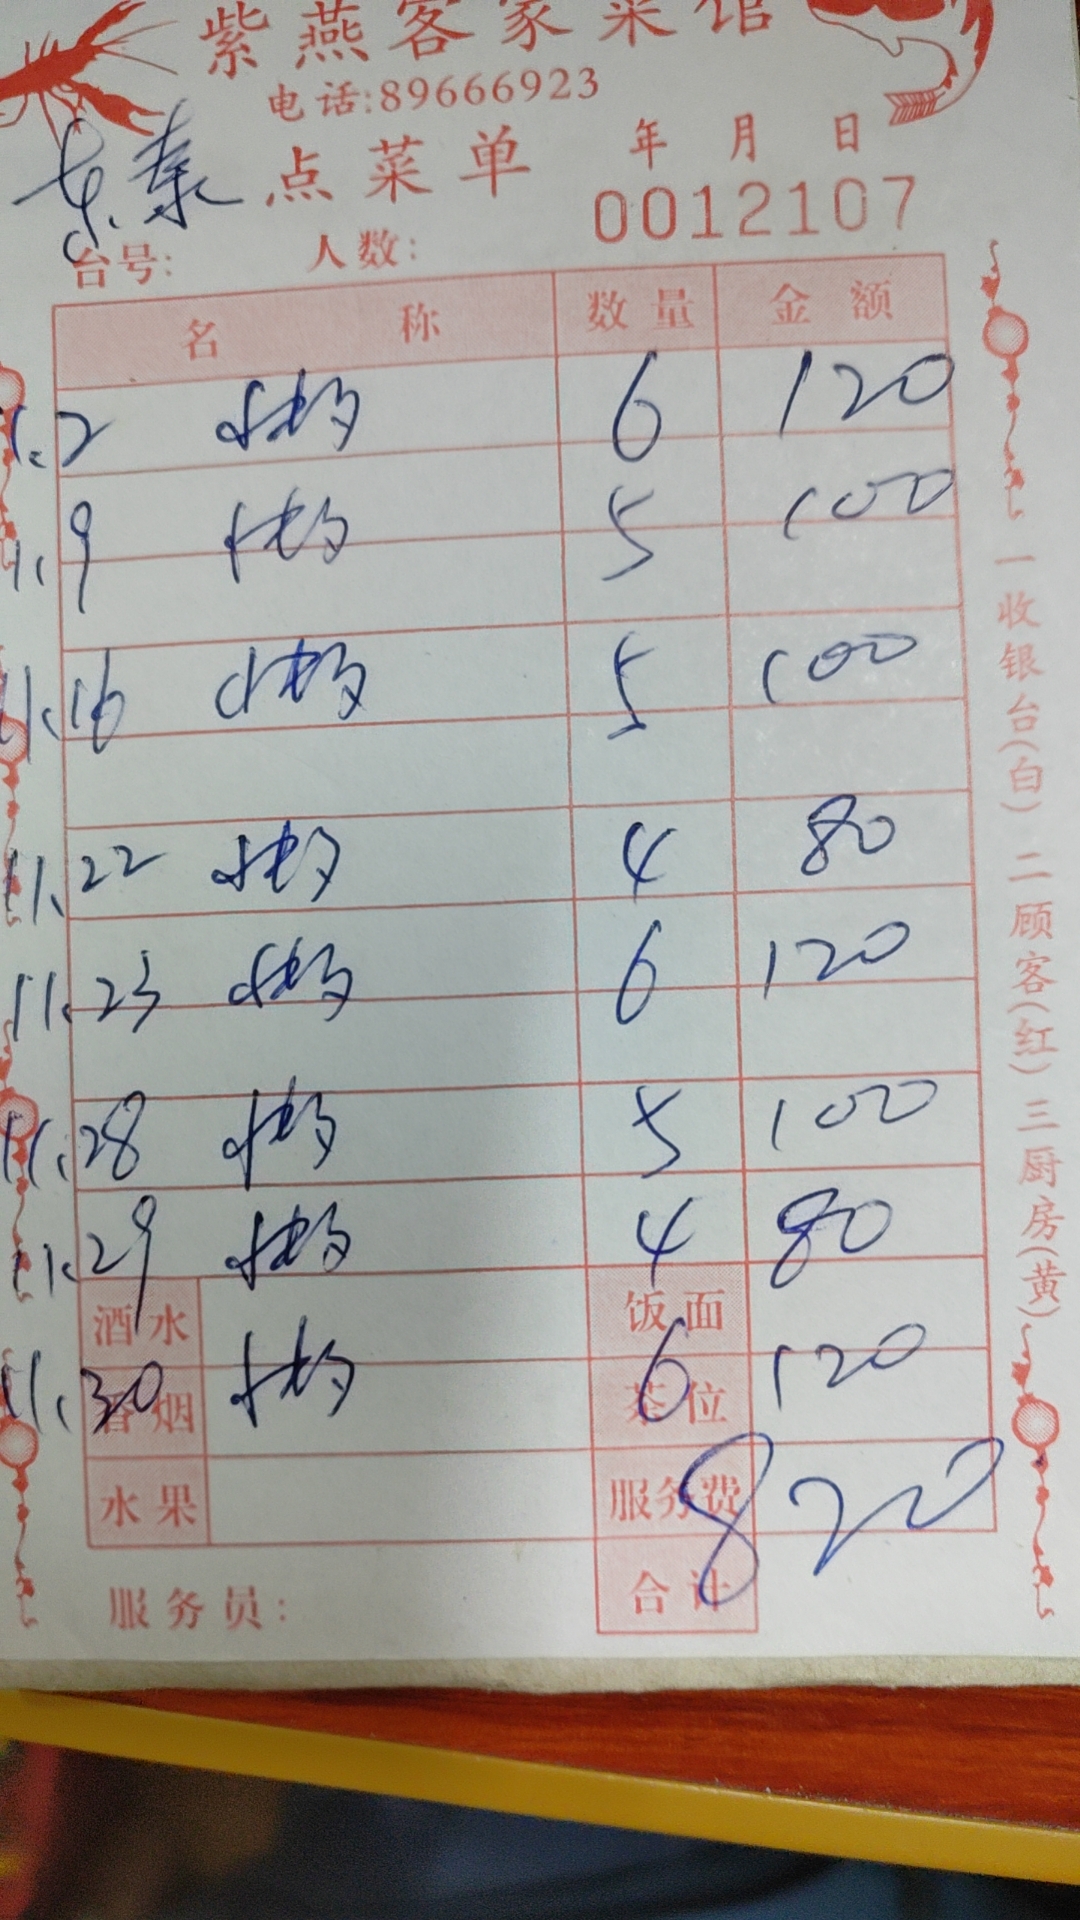 紫燕客家菜馆
电话:89666923
点菜单 年 月 日
0012107
台号: 人数:
名 称 数量 金额
11.2 快 6 120
11.9 5 100
11.16 5 100
11.22 4 80
11.23 6 120
11.28 5 100
11.29 4 80
酒水 饭面
11.30 6 120
香烟 茶位
水果 服务费
820
服务员: 合计
一收银台(白) 二顾客(红) 三厨房(黄)